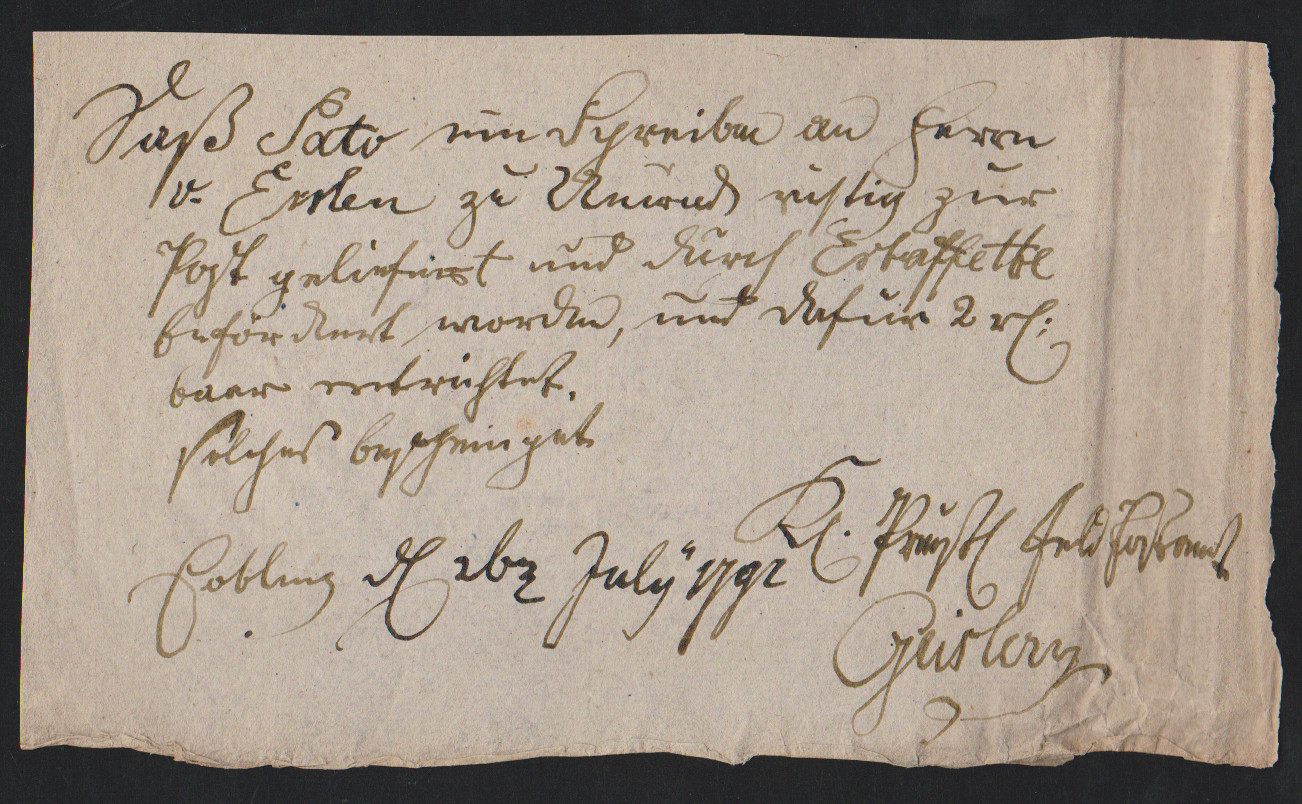 Daß Dato ein Schreiben an Herrn
v. Erxlen zu Neuwied richtig zur
Post geliefert und durch Estaffette
befördert worden, und dafür 2 rl:
baar entrichtet.
solches bescheiniget
Koblenz d 26ten July 1792
Kl. Preußl Feld Postamt
Geisler